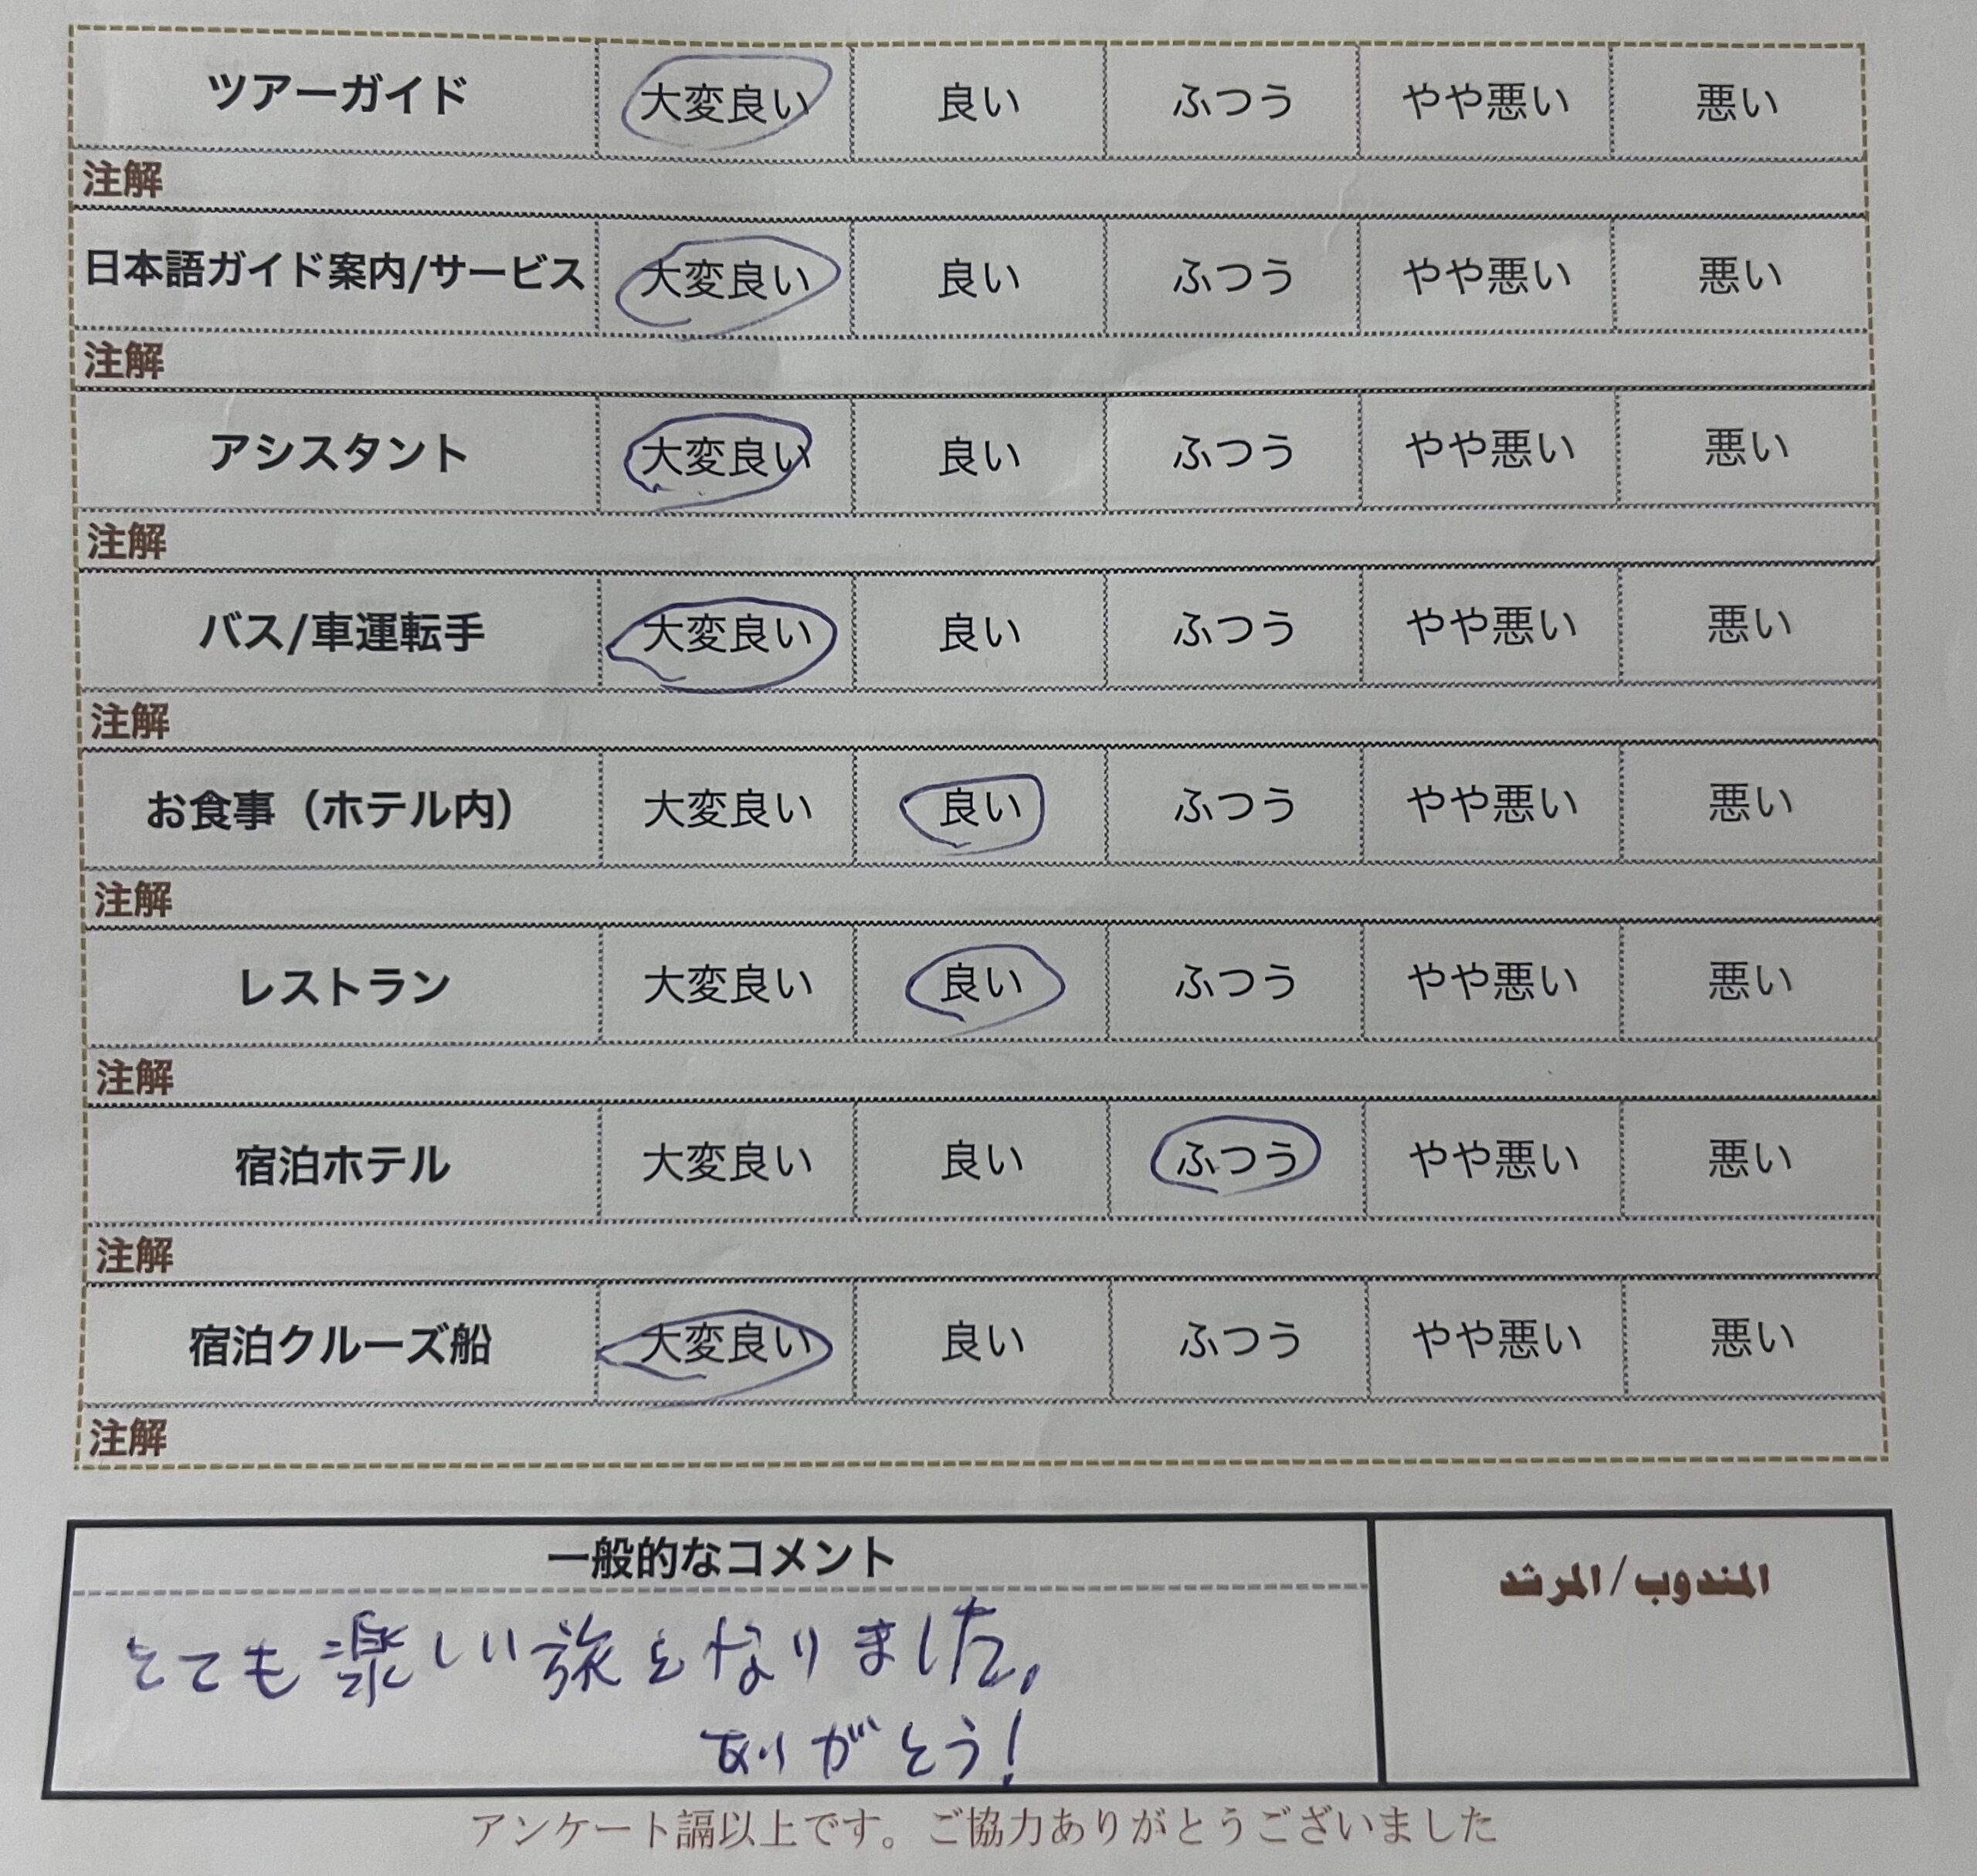 ツアーガイド 大変良い 良い ふつう やや悪い 悪い
注解
日本語ガイド案内/サービス 大変良い 良い ふつう やや悪い 悪い
注解
アシスタント 大変良い 良い ふつう やや悪い 悪い
注解
バス/車運転手 大変良い 良い ふつう やや悪い 悪い
注解
お食事（ホテル内） 大変良い 良い ふつう やや悪い 悪い
注解
レストラン 大変良い 良い ふつう やや悪い 悪い
注解
宿泊ホテル 大変良い 良い ふつう やや悪い 悪い
注解
宿泊クルーズ船 大変良い 良い ふつう やや悪い 悪い
注解
一般的なコメント
とても楽しい旅となりました。
ありがとう!
المندوب/المرشد
アンケート謳以上です。ご協力ありがとうございました